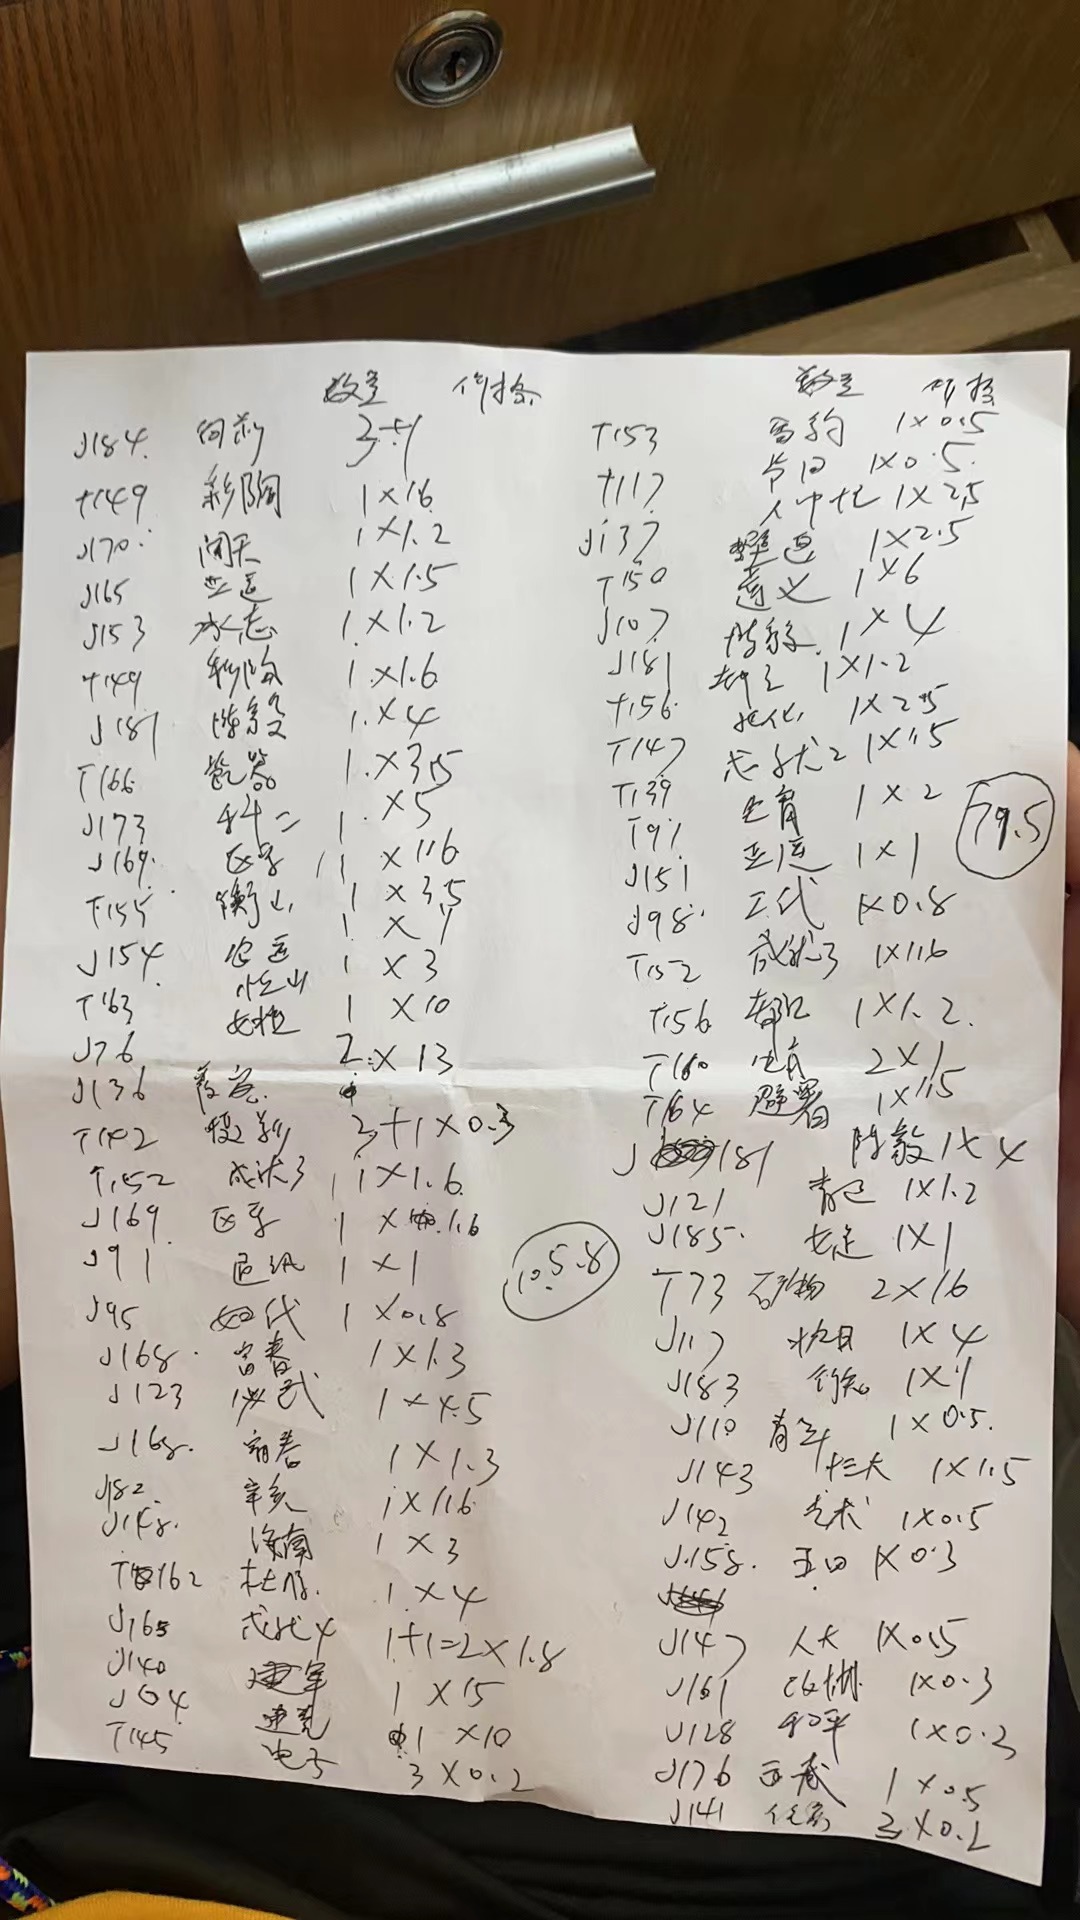 数量 价格
J184. 3+1
T149 彩陶 1×16
J170. 1×1.2
J165 亚运 1×1.5
J153 1×1.2
T149 彩陶 1×1.6
J181 陈毅 1×4
T166 瓷器 1×3.5
J173 科二 1×5
J169. 区子 1×1.6
T155 衡山 1×3.5
J154 农运 1×1
T163 恒山 1×3
J76 女排 1×10
J136 2×13
T142 3+1×0.3
T152 成就3 1×1.6
J169 区子 1×1.6
J91 1×1
J95 妇代 1×0.8
J168. 富春 1×1.3
J123 必武 1×4.5
J168. 富春 1×1.3
J82. 辛亥 1×1.6
J148. 海南 1×3
T162 杜鹃. 1×4
J165 成就4 1+1=2×1.8
J140 建军 1×15
J64 1×10
T145 电子 3×0.2
10.5.8
数量 价格
T153 雪豹 1×0.5
T117 节日 1×0.5.
J137 人中 1×2.5
T150 壁画 1×2.5
J107 遵义 1×6
J181 陈毅 1×4
T156 1×1.2
T147 1×2.5
T139 成就2 1×1.5
T91 生育 1×2
J151 亚运 1×1
J98. 工代 1×0.8
T152 成就3 1×1.6
T156 都江 1×1.2.
T160 体育 2×1
T164 避暑 1×1.5
J181 陈毅 1×4
J121 1×1.2
J185. 女足 1×1
T73 矿物 2×1.6
J117 抗日 1×4
J183 行知 1×1
J110 青年 1×0.5.
J143 十三大 1×1.5
J142 艺术 1×0.5
J158. 五四 1×0.3
J147 人大 1×0.5
J161 政协 1×0.3
J128 和平 1×0.3
J176 西藏 1×0.5
J141 住房 3×0.2
79.5